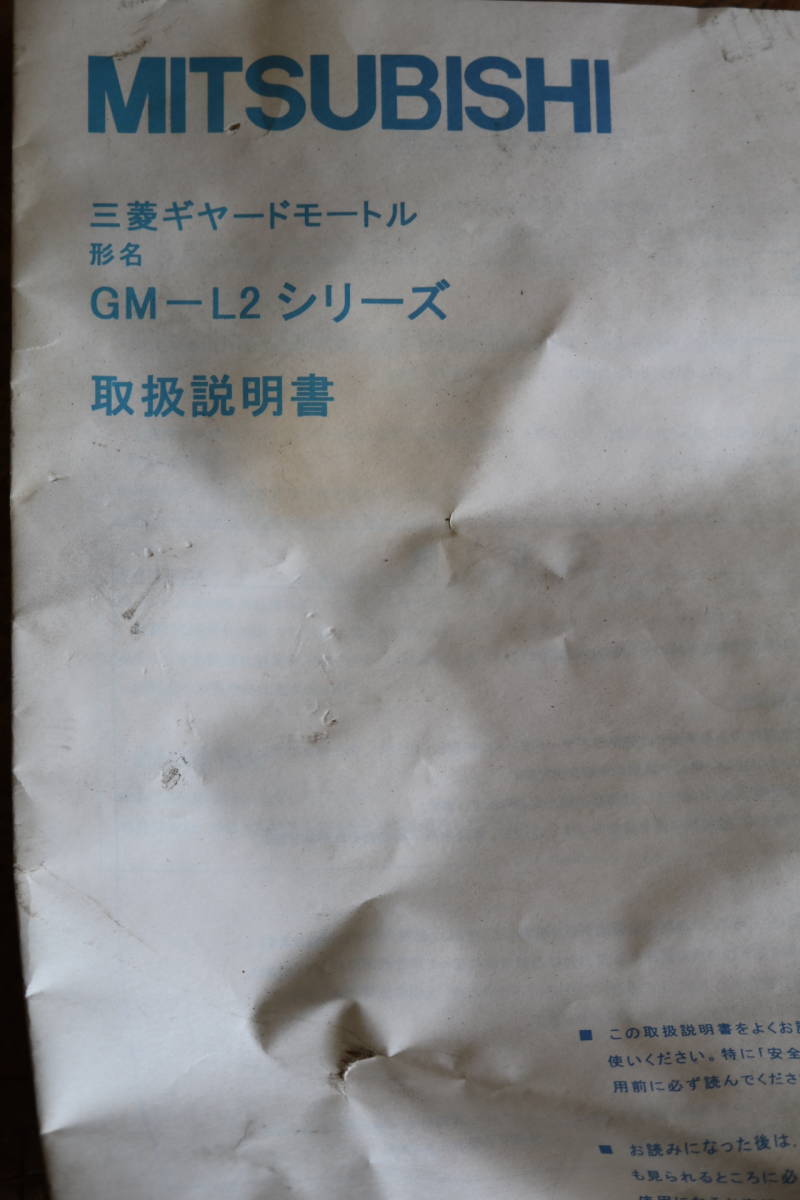 MITSUBISHI
三菱ギヤードモートル
形名
GM－L2 シリーズ
取扱説明書
■ この取扱説明書をよくお
使いください。特に「安全
用前に必ず読んでくださ
■ お読みになった後は、
も見られるところに必